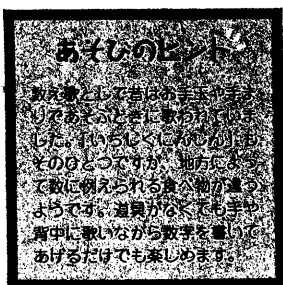 あそびのヒント
数え歌として昔はお手玉や手ま
りであそぶときに歌われていま
した。「いちじくにんじん」も
そのひとつですが、地方によっ
て数に例えられる食べ物が違う
ようです。道具がなくても手や
背中に歌いながら数字を書いて
あげるだけでも楽しめます。